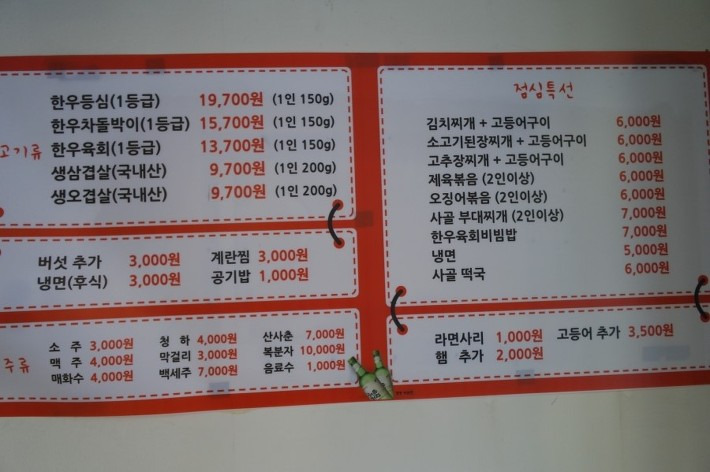 고기류
한우등심(1등급) 19,700원 (1인 150g)
한우차돌박이(1등급) 15,700원 (1인 150g)
한우육회(1등급) 13,700원 (1인 150g)
생삼겹살(국내산) 9,700원 (1인 200g)
생오겹살(국내산) 9,700원 (1인 200g)
버섯 추가 3,000원 계란찜 3,000원
냉면(후식) 3,000원 공기밥 1,000원
주류
소 주 3,000원 청 하 4,000원 산사춘 7,000원
맥 주 4,000원 막걸리 3,000원 복분자 10,000원
매화수 4,000원 백세주 7,000원 음료수 1,000원
점심특선
김치찌개 + 고등어구이 6,000원
소고기된장찌개 + 고등어구이 6,000원
고추장찌개 + 고등어구이 6,000원
제육볶음 (2인이상) 6,000원
오징어볶음 (2인이상) 6,000원
사골 부대찌개 (2인이상) 7,000원
한우육회비빔밥 7,000원
냉면 5,000원
사골 떡국 6,000원
라면사리 1,000원 고등어 추가 3,500원
햄 추가 2,000원